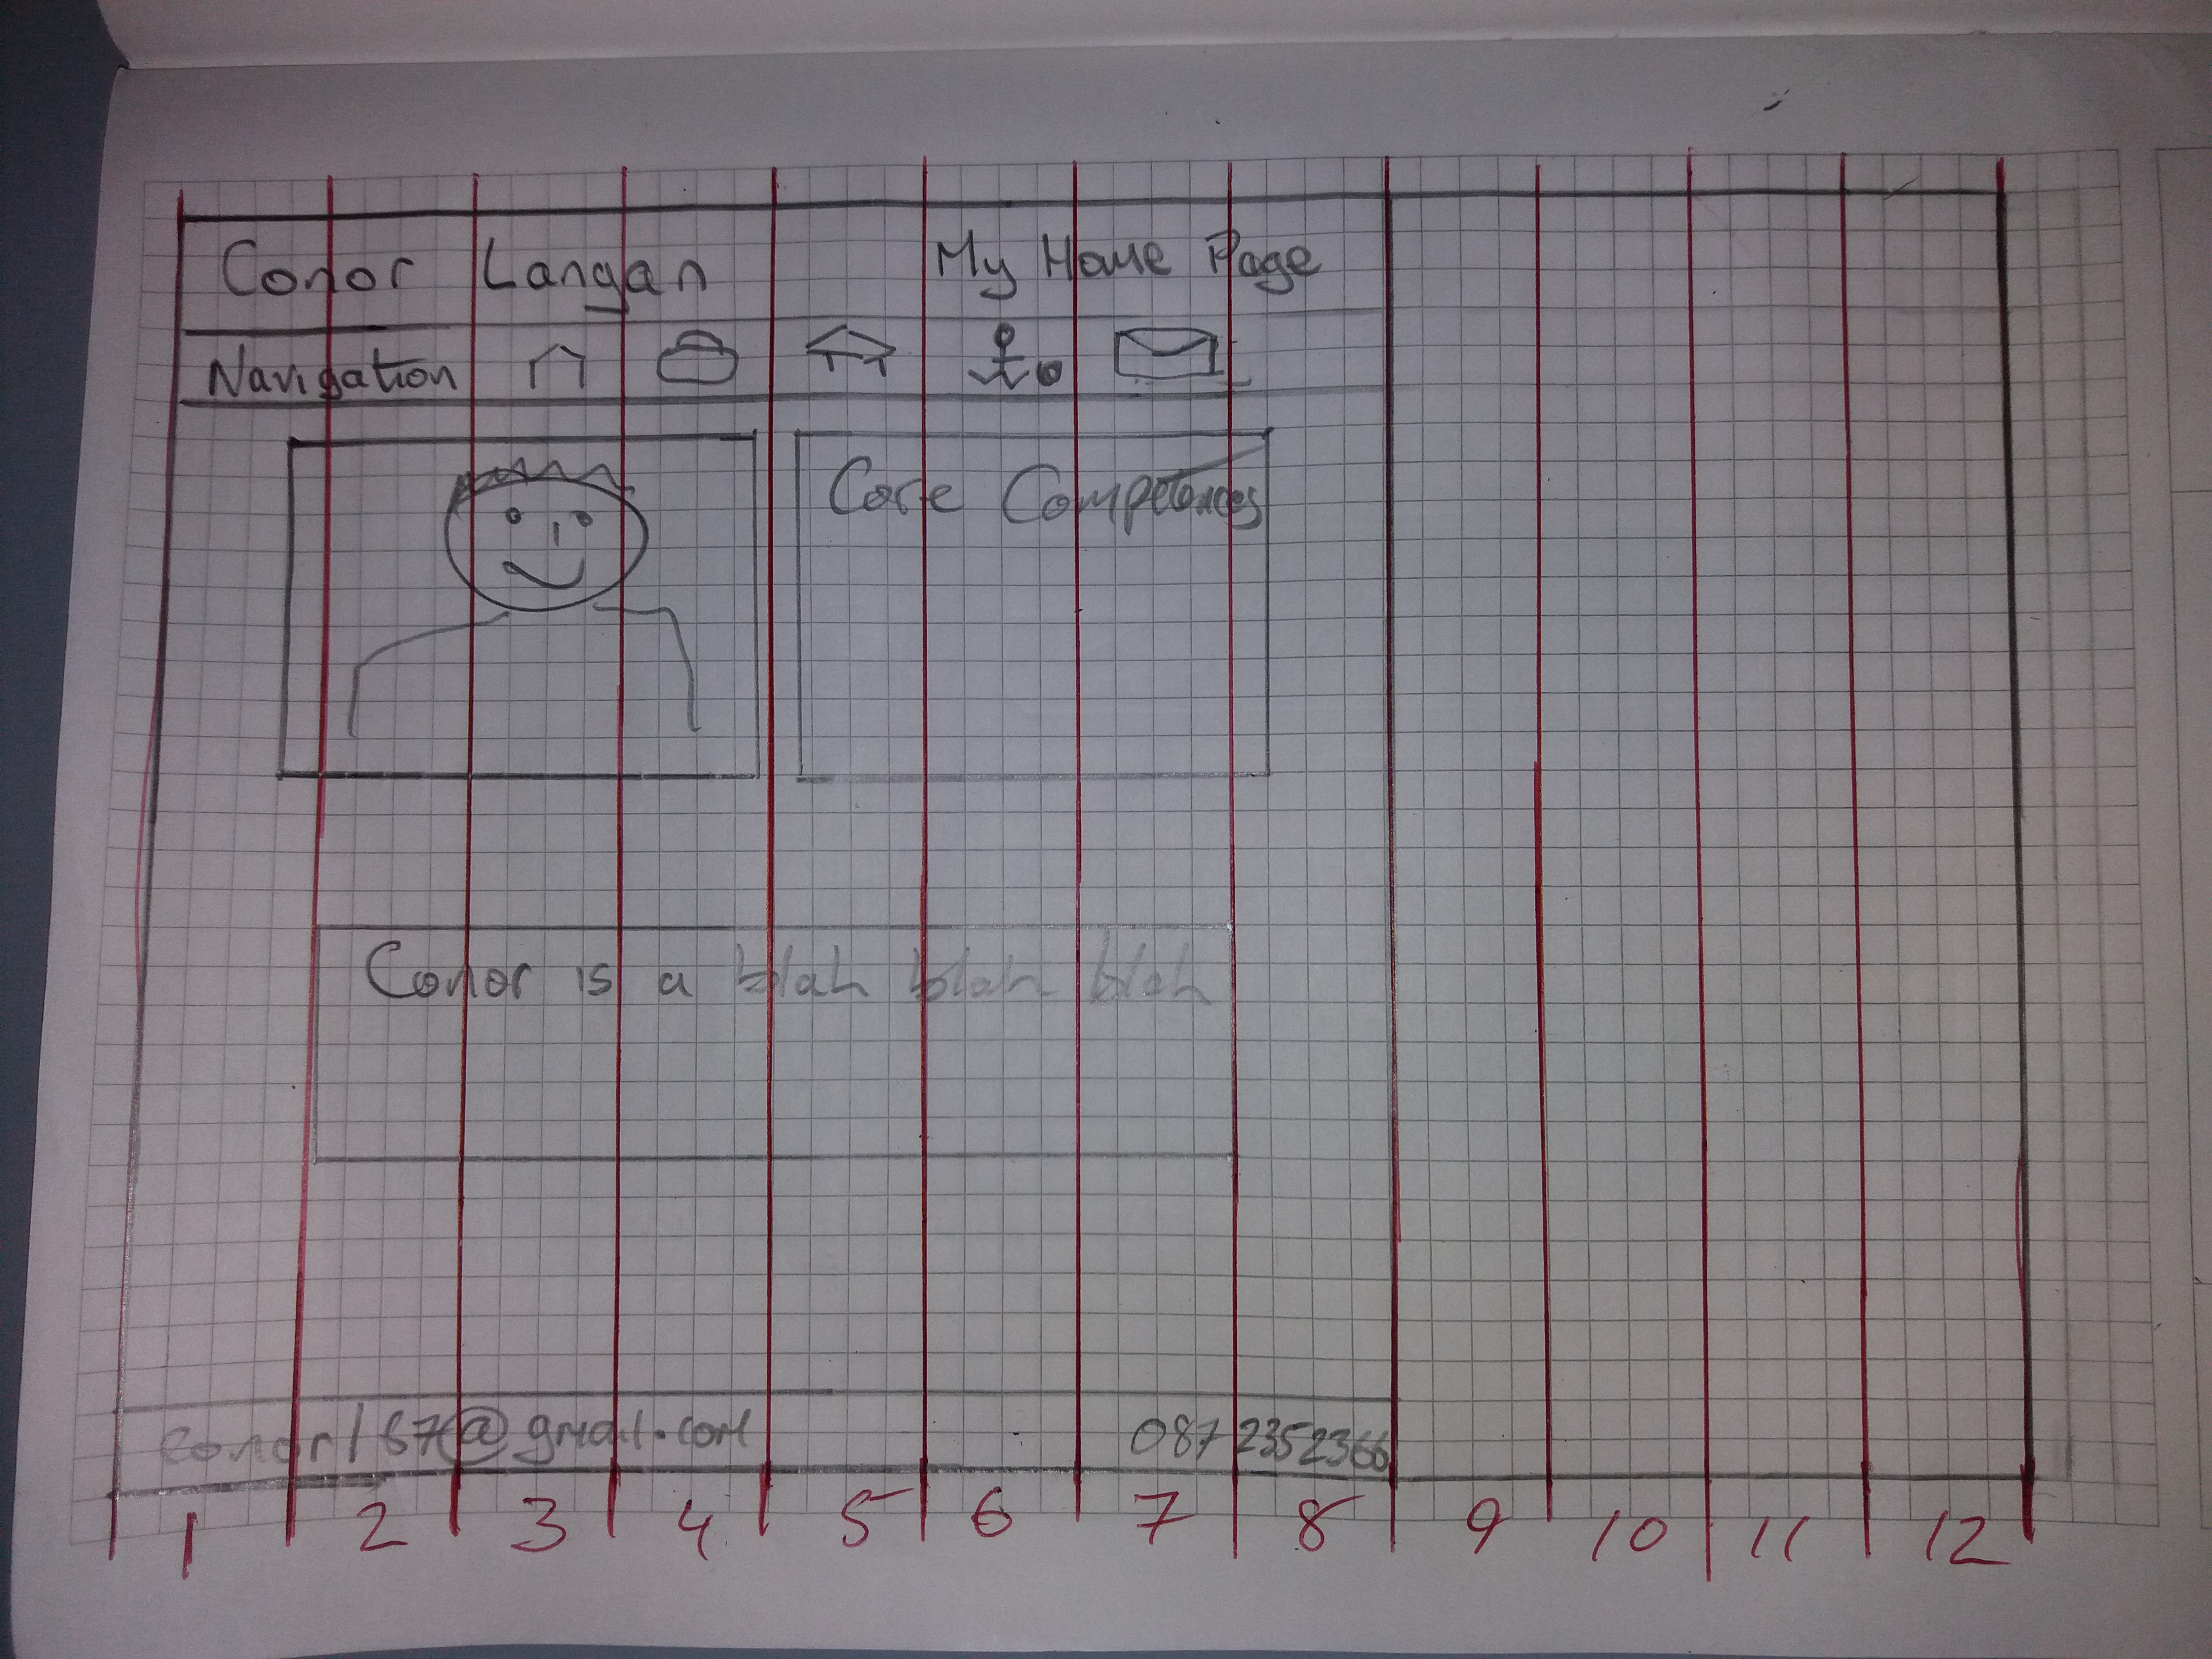 Conor Langan My Home Page
Navigation
Core Competences
Conor is a blah blah blah
conor167@gmail.com 087 2352366
1 2 3 4 5 6 7 8 9 10 11 12